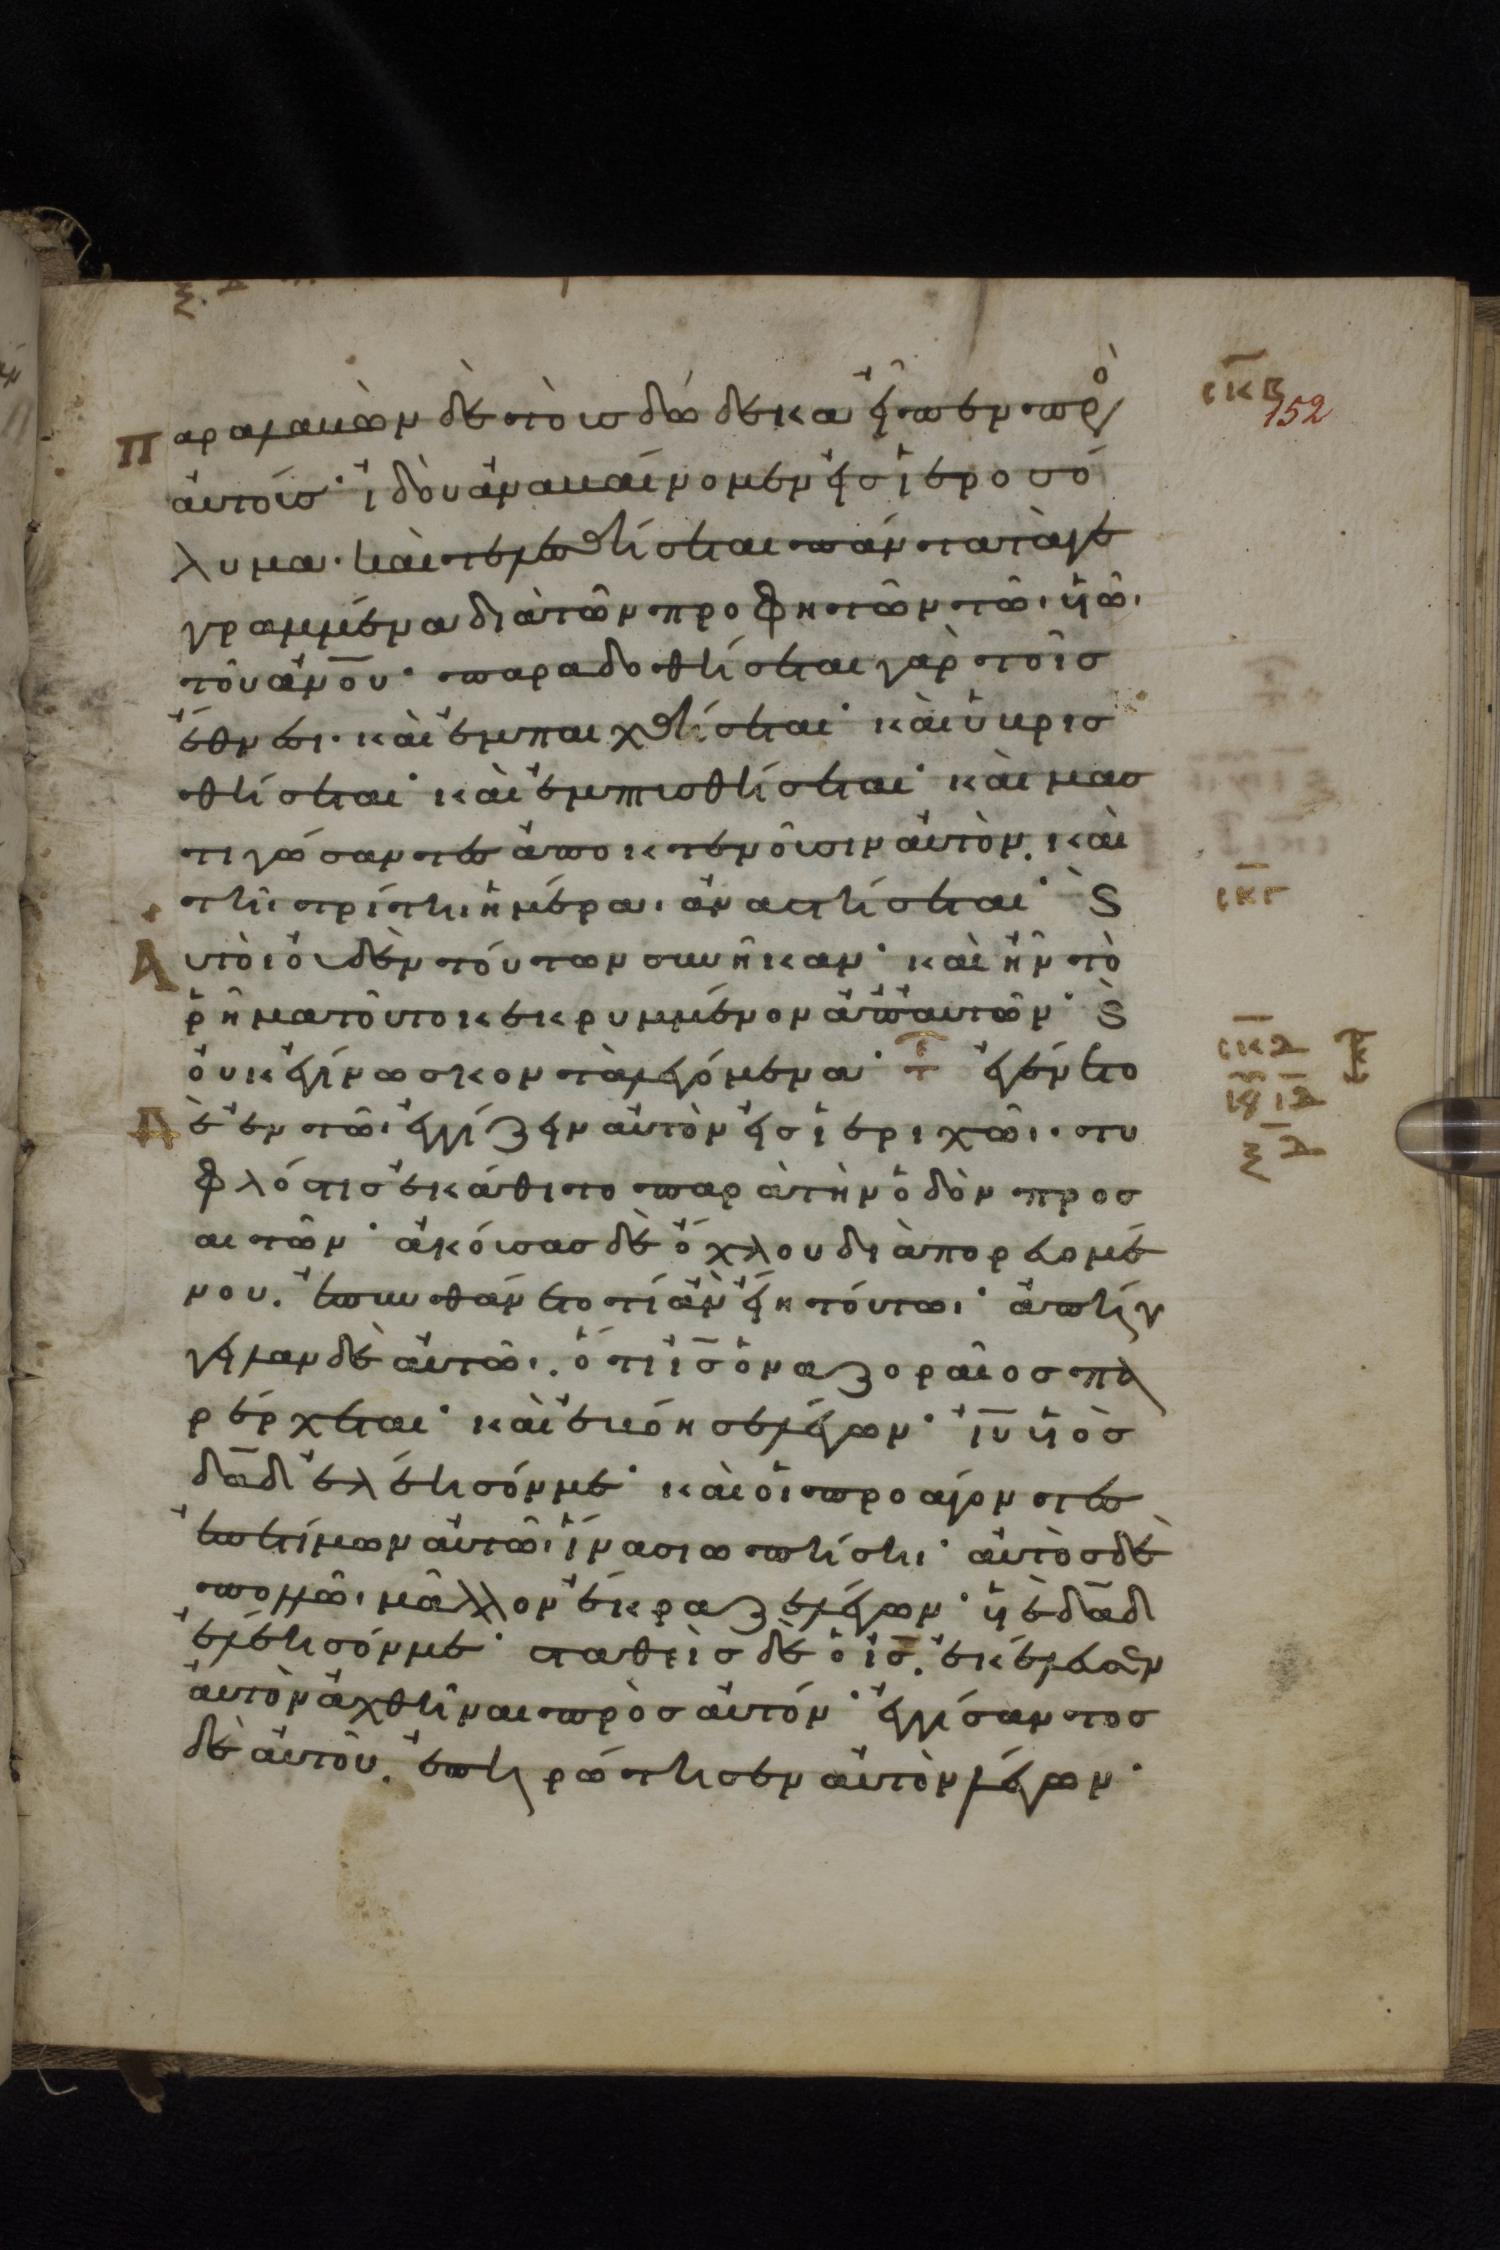 σκβ 152
Παραλαβὼν δὲ τοὺσ δώδεκα εἶπεν πρὸ
ἀυτούσ· ἰδοὺ ἀναβαίνομεν εἰσ ἱεροσό
λυμα· καὶ τελεσθήσεται πάντα τὰ γε
γραμμένα διὰ τῶν προφητῶν τῶι ὑῶι
τοῦ ἀν̅ο̅υ̅· παραδοθήσεται γὰρ τοῖσ
ἔθνεσι· καὶ ἐμπαιχθήσεται· καὶ ὑβρισ
θήσεται· καὶ ἐμπτυσθήσεται· καὶ μασ
τιγώσαντεσ ἀποκτενοῦσιν ἀυτὸν. καὶ
τῆι τρίτηι ἡμέραι ἀναστήσεται· ϗ σκγ
Αυτοὶ ὀυδὲν τούτων συνῆκαν· καὶ ἦν τὸ
ῥῆμα τοῦτο κεκρυμμένον ἀπ' ἀυτῶν· ϗ
ὀυκ ἐγίνωσκον τὰ λεγόμενα· ἐγένετο σκδ
Δὲ ἐν τῶι ἐγγίζειν ἀυτὸν εἰσ ἱεριχῶι· τυ
φλόσ τισ ἐκάθητο παρὰ τὴν ὁδὸν προσ
αιτῶν· ἀκούσασ δὲ ὄχλου διαπορευομέ
νου. ἐπυνθάνετο τί ἂν εἴη τοῦτο· ἀπήγ
γειλαν δὲ ἀυτῶι. ὅτι ι̅σ̅ ὁ ναζοραῖοσ πα
ρέρχεται· καὶ ἐβόησε λέγων· ι̅υ̅ ὑὸσ
δα̅δ̅ ἐλέησόν με· καὶ οἱ προάγοντεσ
ἐπετίμων ἀυτῶι ἵνα σιωπήσηι· ἀυτὸσ δὲ
πολλῶι μᾶλλον ἔκραζε λέγων· ὑὲ δα̅δ̅
ἐλέησόν με· σταθεὶσ δὲ ὁ ι̅σ̅. ἐκέλευσεν
ἀυτὸν ἀχθῆναι πρὸσ ἀυτόν· ἐγγίσαντοσ
δὲ ἀυτοῦ. ἐπηρώτησεν ἀυτὸν λέγων·